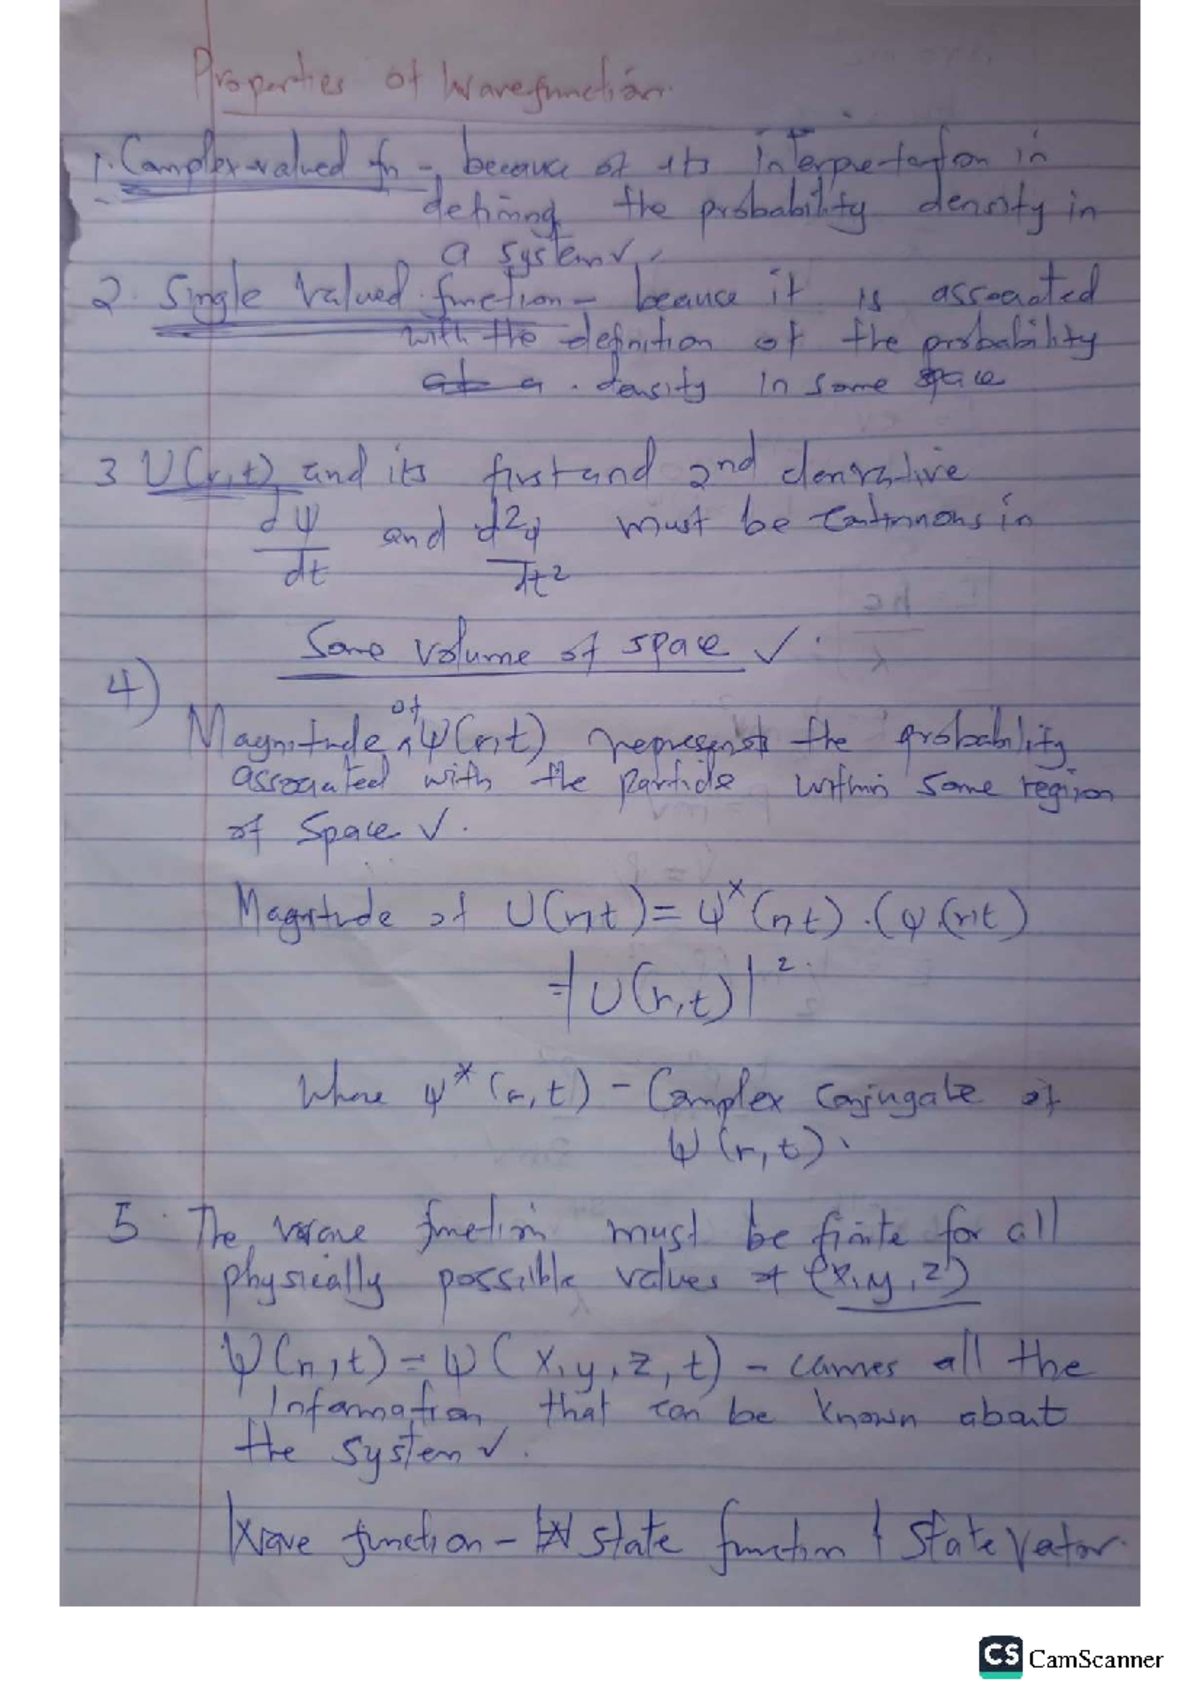 Properties of Wavefunction.
1. Complex-valued fn - because of its interpretation in
defining the probability density in
a system ✓.
2. Single Valued function - beause it is associated
with the definition of the probability
at a . density in some space
3 U(r,t) and its first and 2nd derivative
dψ/dt and d²ψ/dt² must be continuous in
Some volume of space ✓.
4)
of
Magnitude ^ ψ(r,t) represents the probability
associated with the particle within some region
of space ✓.
Magnitude of U(r,t) = ψ*(r,t) . (ψ(r,t)
= |U(r,t)|².
Where ψ*(r,t) - Complex conjugate of
ψ(r,t).
5. The wave function must be finite for all
physically possible values of (x,y,z)
ψ(r,t) = ψ(x,y,z,t) - carries all the
Information that can be known about
the system ✓.
Wave function - state function / state vector.
CS CamScanner